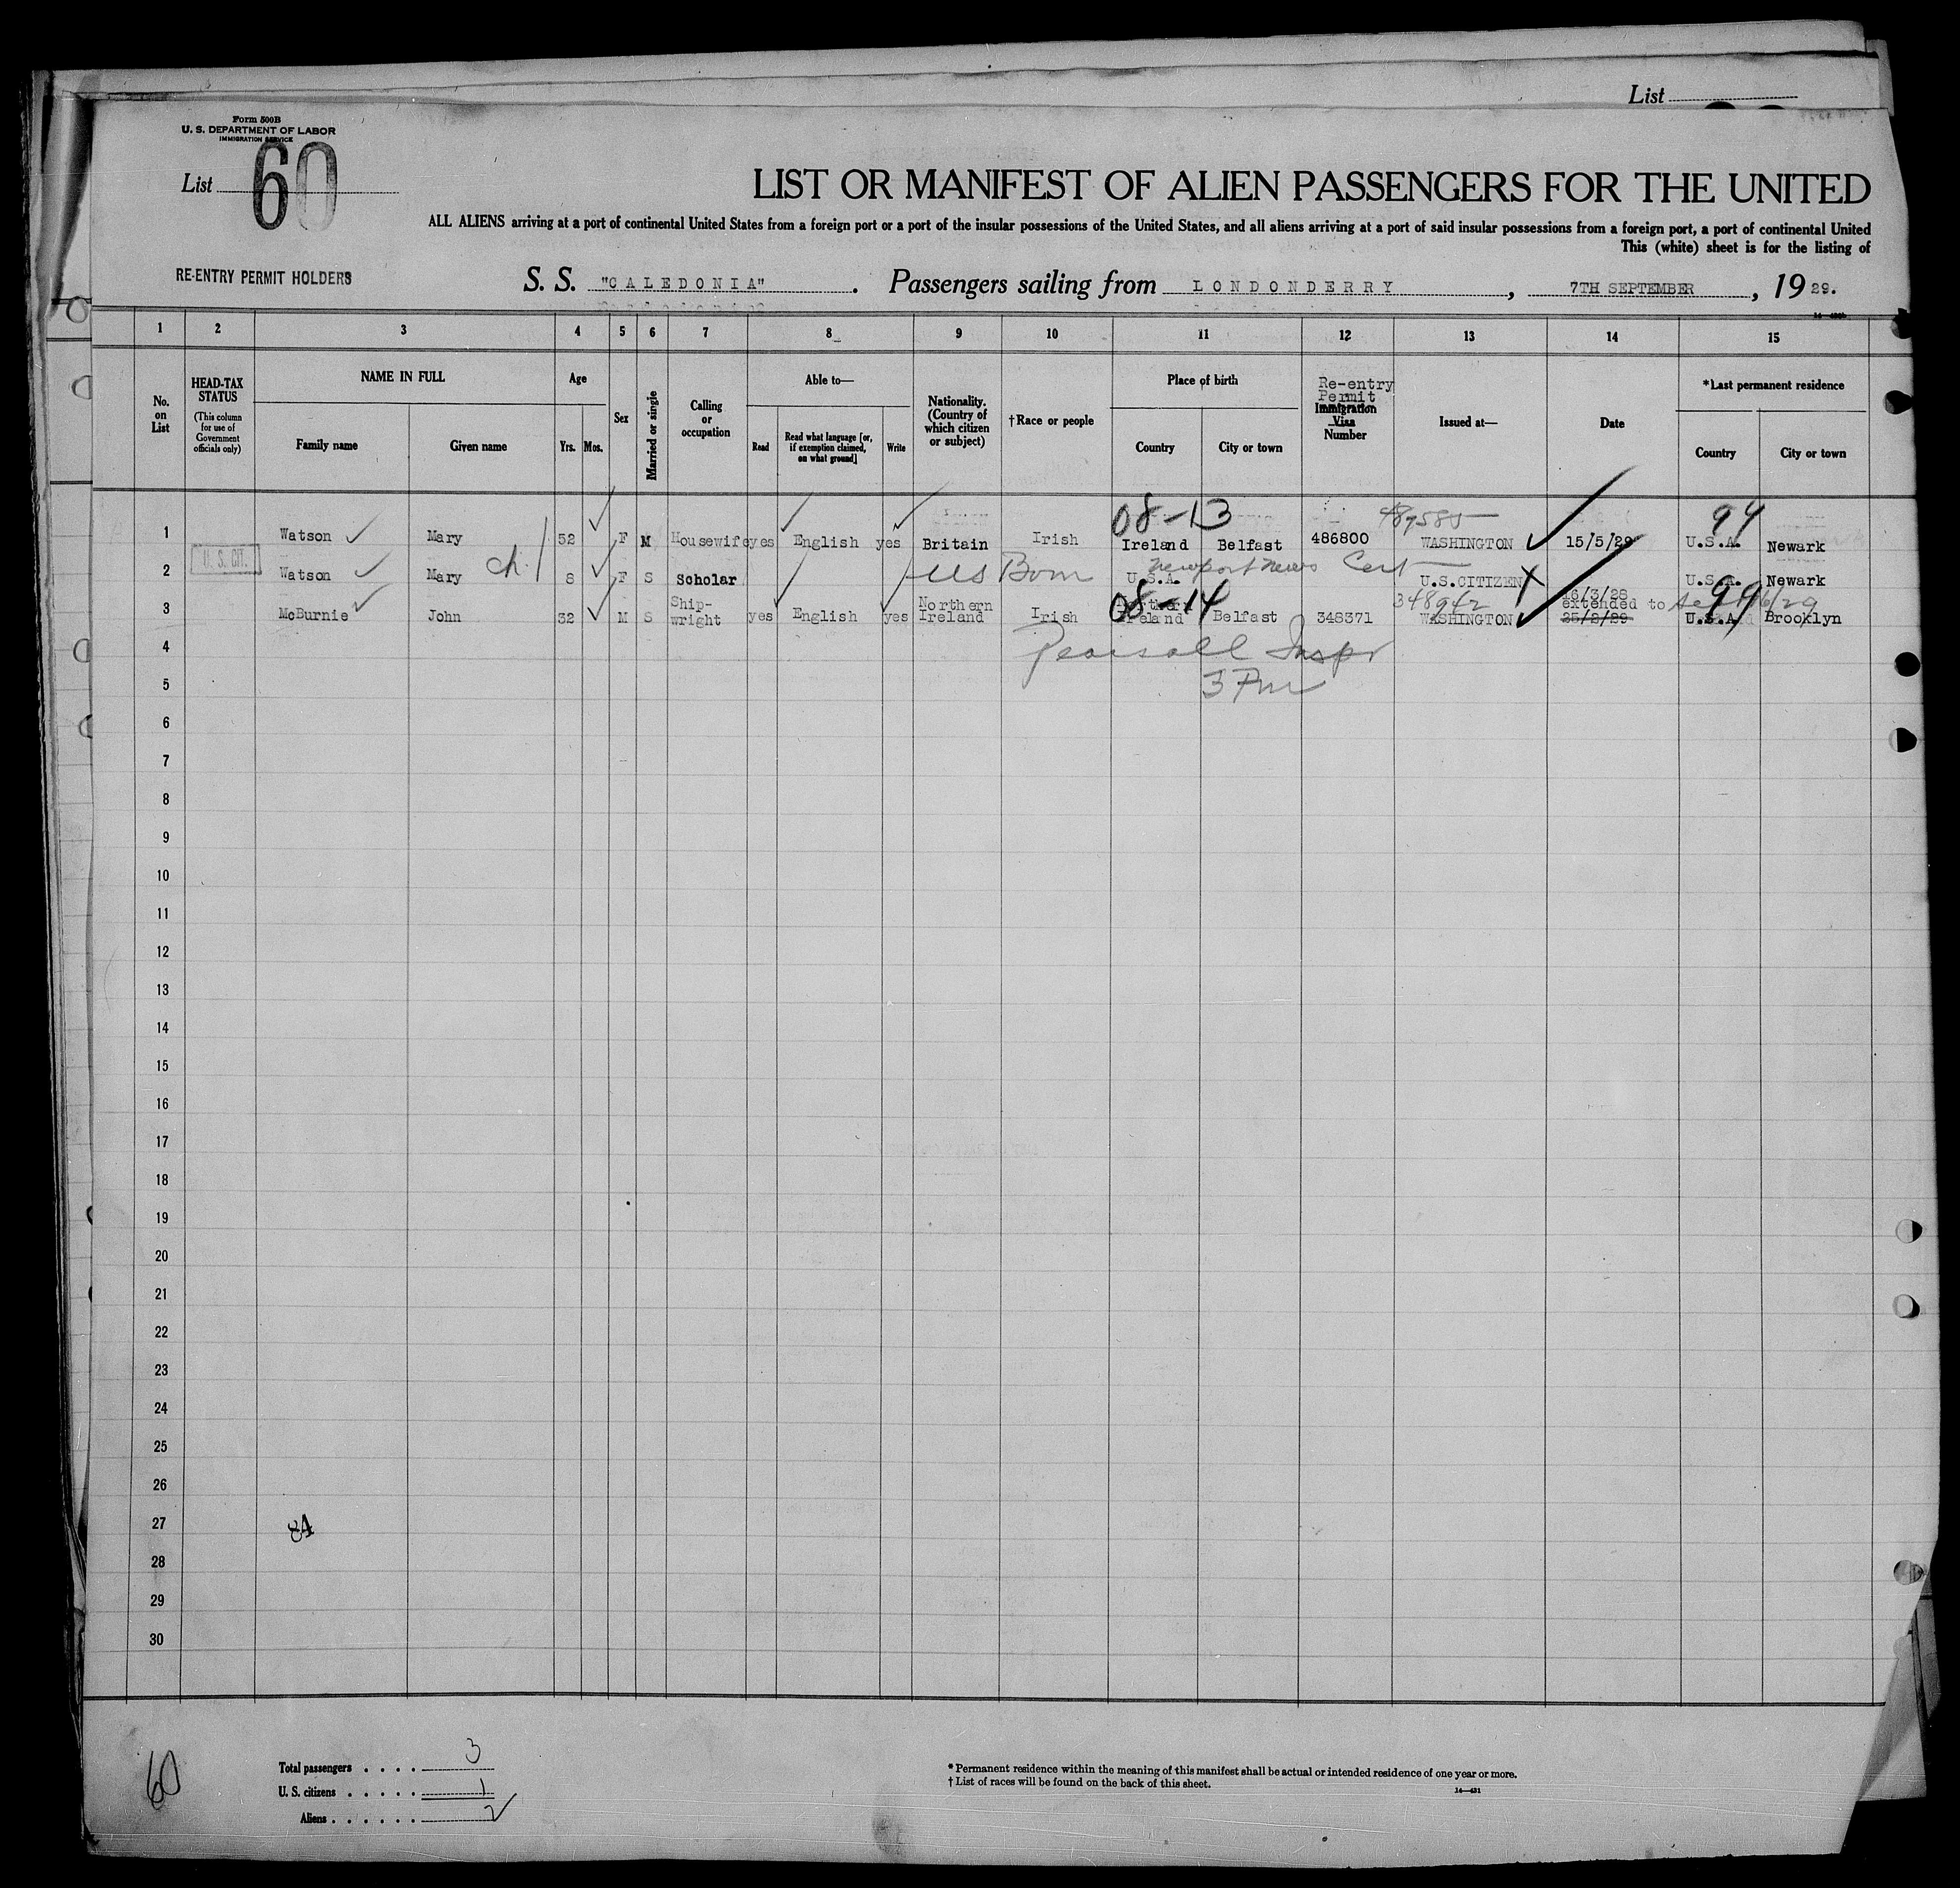 List
Form 500B
U. S. DEPARTMENT OF LABOR
IMMIGRATION SERVICE
List 60
LIST OR MANIFEST OF ALIEN PASSENGERS FOR THE UNITED
ALL ALIENS arriving at a port of continental United States from a foreign port or a port of the insular possessions of the United States, and all aliens arriving at a port of said insular possessions from a foreign port, a port of continental United
This (white) sheet is for the listing of
RE-ENTRY PERMIT HOLDERS
S. S. "CALEDONIA". Passengers sailing from LONDONDERRY, 7TH SEPTEMBER, 1929.
1 2 3 4 5 6 7 8 9 10 11 12 13 14 15
No. on List
HEAD-TAX STATUS
(This column for use of Government officials only)
NAME IN FULL
Family name Given name
Age
Yrs. Mos.
Sex
Married or single
Calling or occupation
Able to—
Read Read what language [or, if exemption claimed, on what ground] Write
Nationality. (Country of which citizen or subject)
†Race or people
Place of birth
Country City or town
Re-entry Permit
Immigration Visa
Number
Issued at—
Date
*Last permanent residence
Country City or town
08-13 487585 99
1 Watson Mary 52 F M Housewife yes English yes Britain Irish Ireland Belfast 486800 WASHINGTON 15/5/29 U.S.A. Newark
U. S. CIT.
ch.
Newport News Cert
2 Watson Mary 8 F S Scholar US Born U.S.A. U.S.CITIZEN U.S.A. Newark
08-14 348942 16/3/28 99
extended to Sept 16/29
3 McBurnie John 32 M S Ship-wright yes English yes Northern Ireland Irish Northern Ireland Belfast 348371 WASHINGTON 25/2/29 U.S.A. Brooklyn
4 Pearsall Inspr
5 3 PM
6
7
8
9
10
11
12
13
14
15
16
17
18
19
20
21
22
23
24
25
26
27 84
28
29
30
60
Total passengers . . . . 3
U. S. citizens . . . . . 1
Aliens . . . . . . 2
* Permanent residence within the meaning of this manifest shall be actual or intended residence of one year or more.
† List of races will be found on the back of this sheet.
14—431